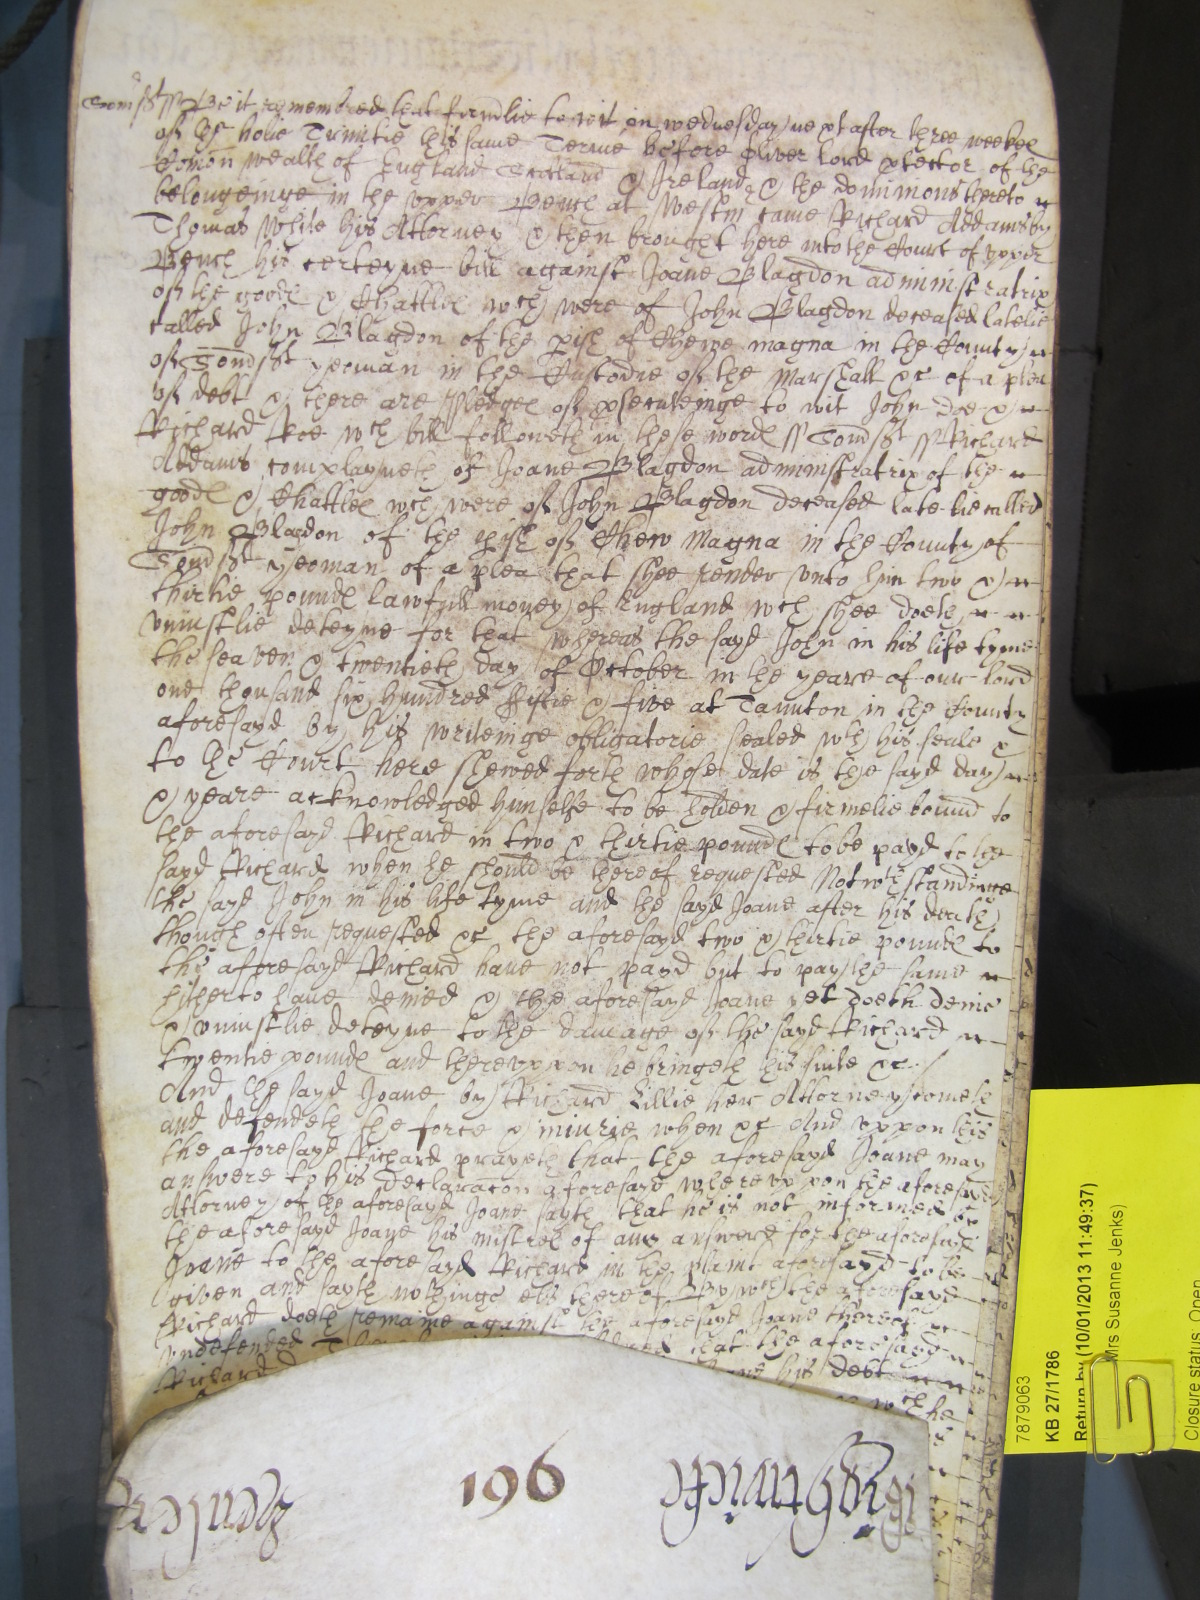 Somst ss Be it remembred that firmlie to wit on wednesday next after three weekes
of the holie Trinitie this same Terme before Oliver lord ptector of the
Comon wealth of England Scotland & Ireland & the dominions thereto
belongeinge in the vpper Bench at Westm came Richard Addams by
Thomas White his Attorney & then brought here into the Court of vpper
Bench his certeyne bill against Joane Blagdon administratrix
of the goods & Chattles wch were of John Blagdon deceased latelie
called John Blagdon of the pish of Chewe magna in the County
of Somst yeoman in the Custodie of the Marshall &c of a plea
of debt & there are pledges of psecuteinge to wit John Doe &
Richard Roe wch bill followeth in these words ss Somst ss Richard
Addams complayneth of Joane Blagdon administratrix of the
goods & Chattles wch were of John Blagdon deceased latelie called
John Blagdon of the pish of Chew Magna in the County of
Somst yeoman of a plea that shee render vnto him two &
thirtie pounds lawfull money of England wch shee doeth
vniustlie deteyne for that whereas the sayd John in his life tyme
the seaven & twentieth day of October in the yeare of our lord
one thousand six hundred fiftie & five at Taunton in the County
aforesayd by his writeinge obligatorie sealed wth his seale &
to the Court here shewed forth whose date is the sayd day
& yeare acknowledged himselfe to be holden & firmelie bound to
the aforesayd Richard in two & thirtie pounds to be payd to the
sayd Richard when he should be thereof requested Notwthstandinge
the sayd John in his life tyme and the sayd Joane after his death
though often requested &c the aforesayd two & thirtie pounds to
the aforesayd Richard have not payd but to pay the same
hitherto have denied & the aforesayd Joane yet doeth denie
& vniustlie deteyne to the damage of the sayd Richard
twentie pounds and therevppon he bringeth his suite &c
And the sayd Joane by Richard Lillie her Attorney cometh
and defendeth the force & iniurie when &c And vppon this
the aforesayd Richard prayeth that the aforesayd Joane may
answere to his declaracon aforesayd wherevppon the aforesayd
Attorney of the aforesayd Joane sayth that he is not informed by
the aforesayd Joane his mistres of any answere for the aforesayd
Joane to the aforesayd Richard in the plaint aforesayd to be
given and sayth nothinge els thereof By wch the aforesayd
Richard doeth remaine against the aforesayd Joane thereof
vndefended that the aforesayd
Richard his debt
wch he
196
7879063
KB 27/1786
Return by (10/01/2013 11:49:37)
Mrs Susanne Jenks)
Closure status: Open